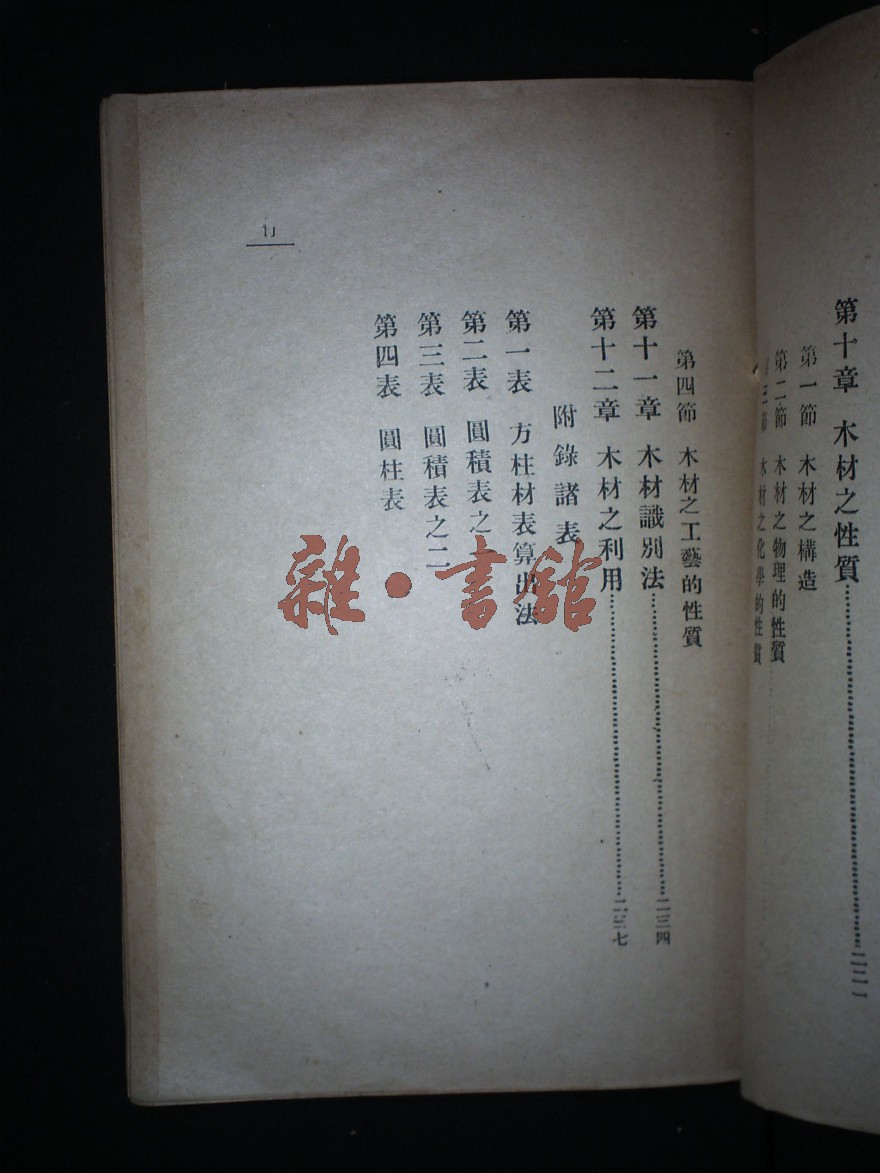 第十章 木材之性質……二二一
第一節 木材之構造
第二節 木材之物理的性質
三節 木材之化學的性質
第四節 木材之工藝的性質
第十一章 木材識別法……二三四
第十二章 木材之利用……二三七
附錄諸表
第一表 方柱材表算出法
第二表 圓積表之
第三表 圓積表之二
第四表 圓柱表
雜·書館